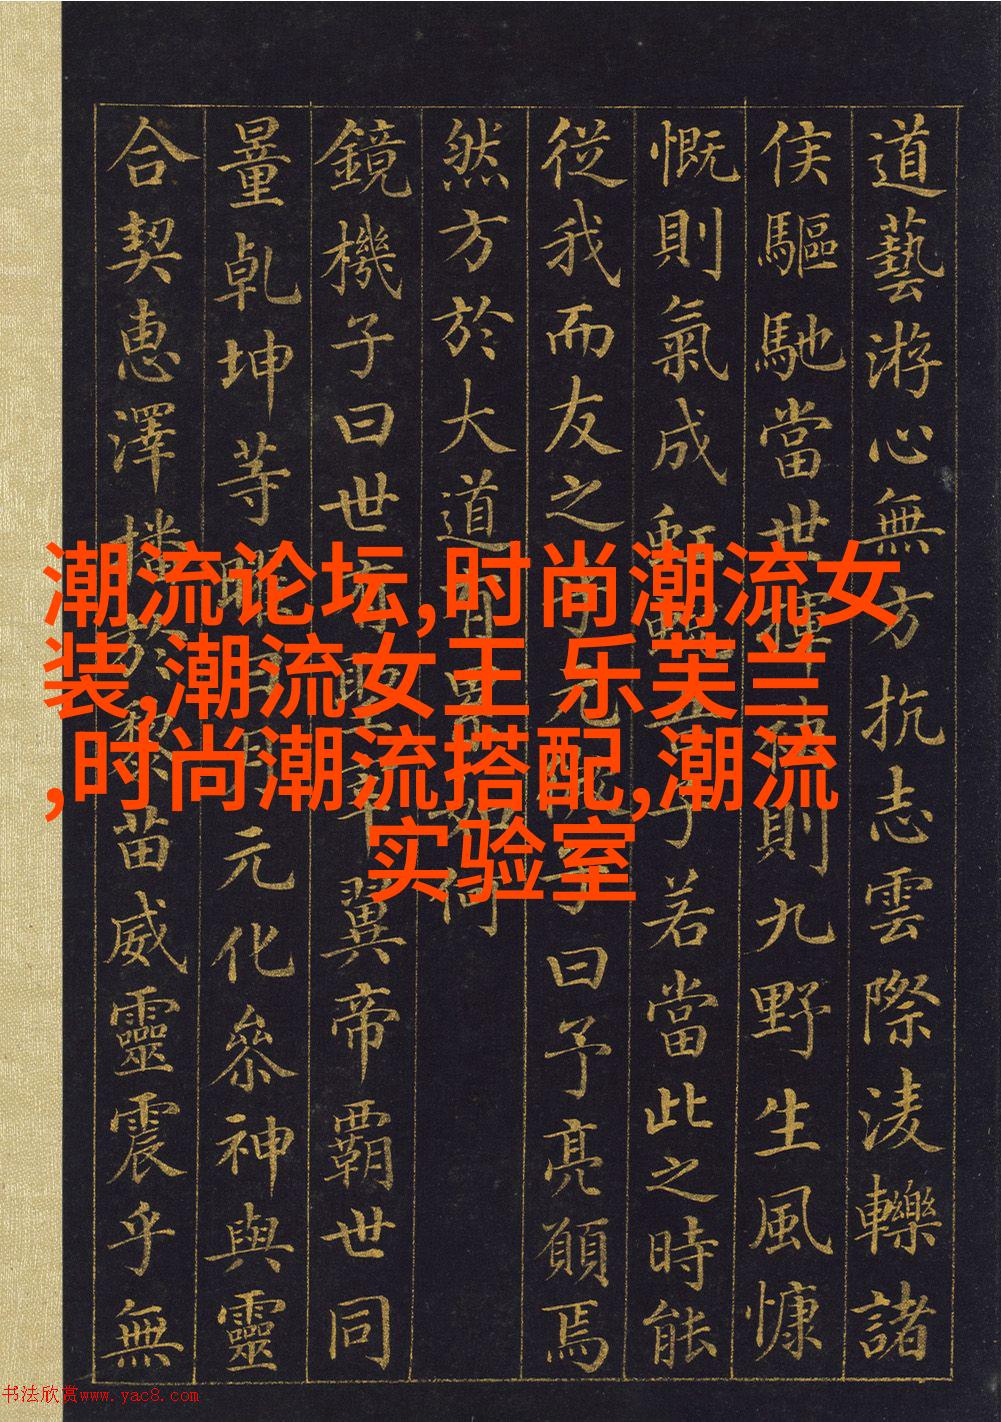 道藝游心無方抗志雲際淩轢諸
侯驅馳當世揮則九野生風慷
慨則氣成虹子若當此之時能
從我而友之乎元子曰予亮願焉
然方於大道有累如何
鏡機子曰世有聖宰翼帝霸世同
量乾坤等曜日月元化叅神與靈
合契惠澤播於黎苗威靈震乎無
潮流论坛,时尚潮流女
装,潮流女王 乐芙兰
,时尚潮流搭配,潮流
实验室
书法欣赏www.yac8.com